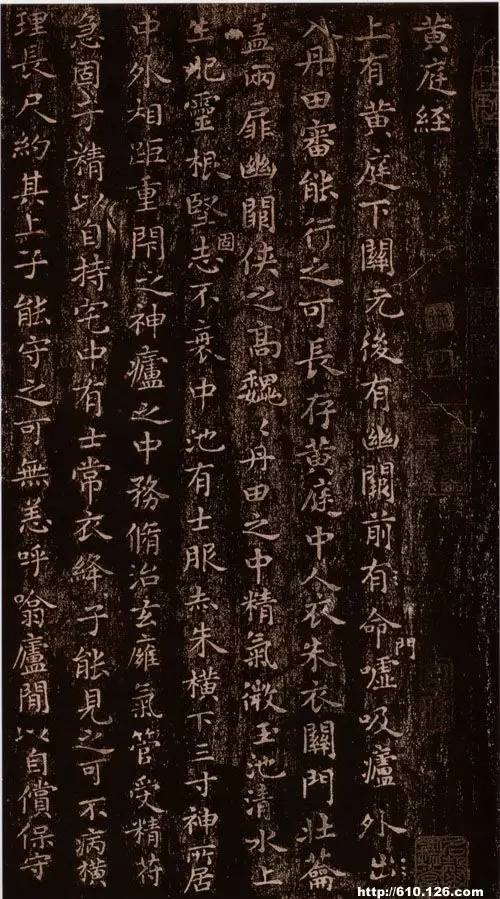 黄庭經
上有黄庭下關元後有幽闕前有命門噓吸廬外出
入丹田審能行之可長存黄庭中人衣朱衣關門壯籥
盖兩扉幽關俠之高巍〻丹田之中精氣微玉池清水上
生肥靈根堅固志不衰中池有士服赤朱横下三寸神所居
中外相距重閇之神廬之中務脩治玄廱氣管受精符
急固子精以自持宅中有士常衣絳子能見之可不病横
理長尺約其上子能守之可無恙呼噏廬閒以自償保守
http://610.126.com/